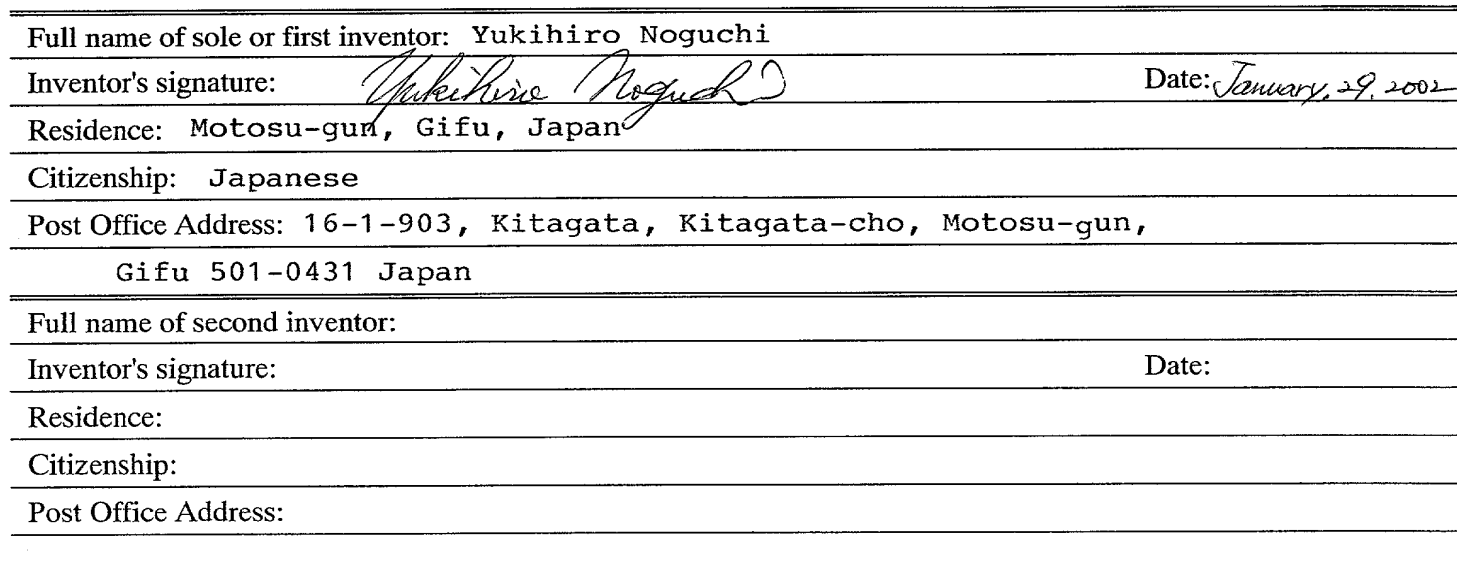 Full name of sole or first inventor: Yukihiro Noguchi
Inventor's signature: Yukihiro Noguchi Date: January, 29, 2002
Residence: Motosu-gun, Gifu, Japan
Citizenship: Japanese
Post Office Address: 16-1-903, Kitagata, Kitagata-cho, Motosu-gun,
Gifu 501-0431 Japan
Full name of second inventor:
Inventor's signature: Date:
Residence:
Citizenship:
Post Office Address: